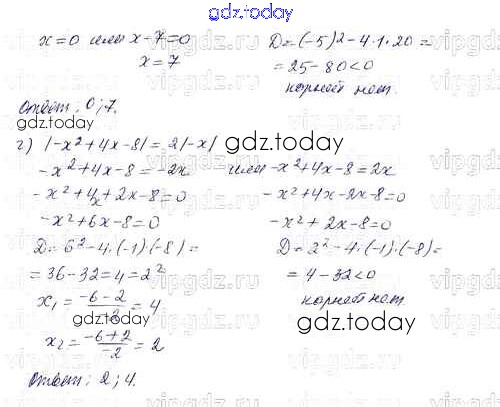 gdz.today
x=0 или x-7=0
x=7
D=(-5)2-4·1·20=
=25-80<0
корней нет.
Ответ: 0;7.
gdz.today
г) |-x²+4x-8|=2|-x|
gdz.today
-x²+4x-8=-2x
-x²+4x+2x-8=0
-x²+6x-8=0
D=6²-4·(-1)·(-8)=
=36-32=4=2²
x₁=\frac{-6-2}{-2}=4
gdz.today
x₂=\frac{-6+2}{-2}=2
или -x²+4x-8=2x
-x²+4x-2x-8=0
-x²+2x-8=0
D=2²-4·(-1)·(-8)=
=4-32<0
корней нет
gdz.today
Ответ: 2;4.
vipgdz.ru